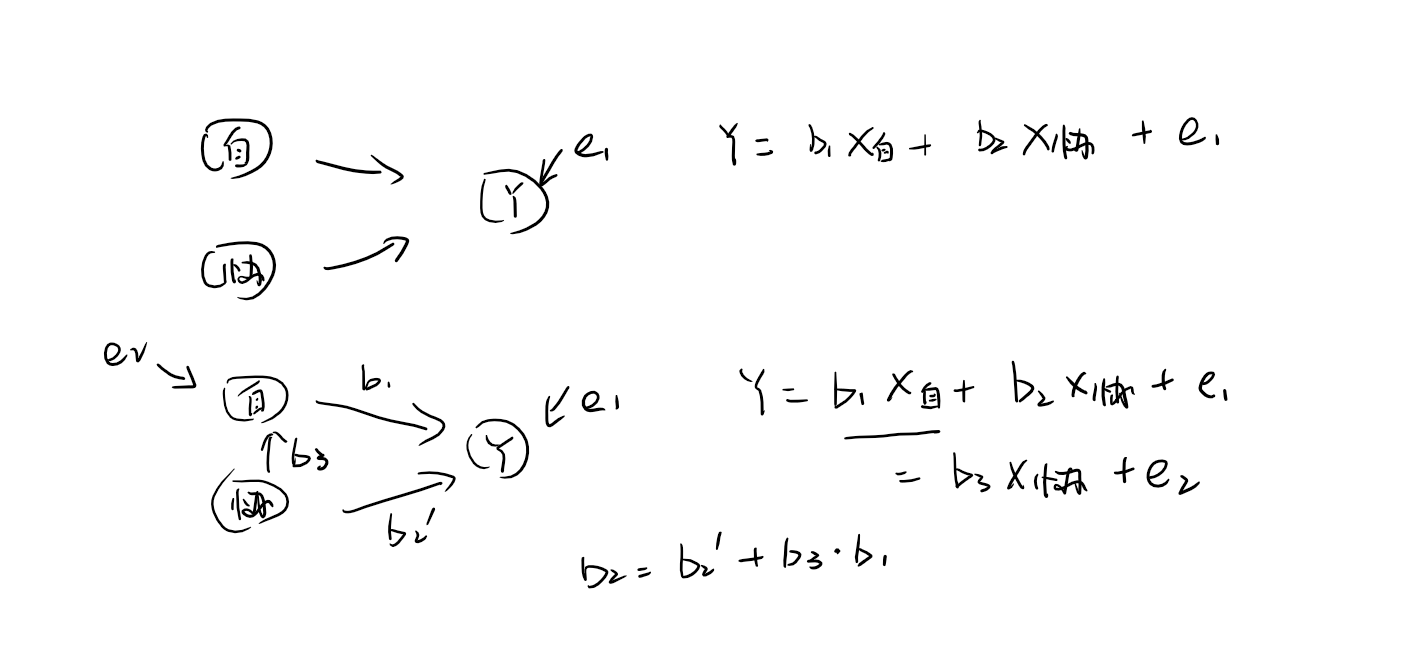 自
协
Y
e₁
Y = b₁ X自 + b₂ X协 + e₁
e₂
自
协
b₁
b₃
b₂'
Y
e₁
Y = b₁ X自 + b₂ X协 + e₁
= b₃ X协 + e₂
b₂ = b₂' + b₃ · b₁